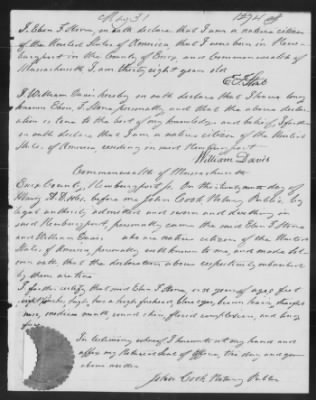 May 31
I, Eben F. Stone, on oath declare that I am a native citizen
of the United States of America, that I was born in New-
buryport in the County of Essex, and Commonwealth of
Massachusetts, I am thirty eight years old
E. F. Stone
I William Davis hereby on oath declare that I have long
known Eben F. Stone personally and that the above decla-
ration is true to the best of my knowledge and belief, I further
on oath declare that I am a native citizen of the United
States of America residing in said Newburyport
William Davis
Commonwealth of Massachusetts
Essex County, Newburyport ss. On the day of
A.D. before me John Cook Notary Public by
legal authority admitted and sworn and dwelling in
said Newburyport, personally came the said Eben F. Stone
and William Davis native citizens of the United
States of America personally well known to me, and made sol-
emn oath that the declarations above respectively subscribed
by them are true
I further certify that said Eben F. Stone, is of age, five feet
high, has a high forehead, blue eyes, brown hair,
nose, medium mouth, round chin, florid complexion, and long
face
In testimony whereof I hereunto set my hand and
affix my Notarial Seal of Office, this day and year
above written
John Cook Notary Public